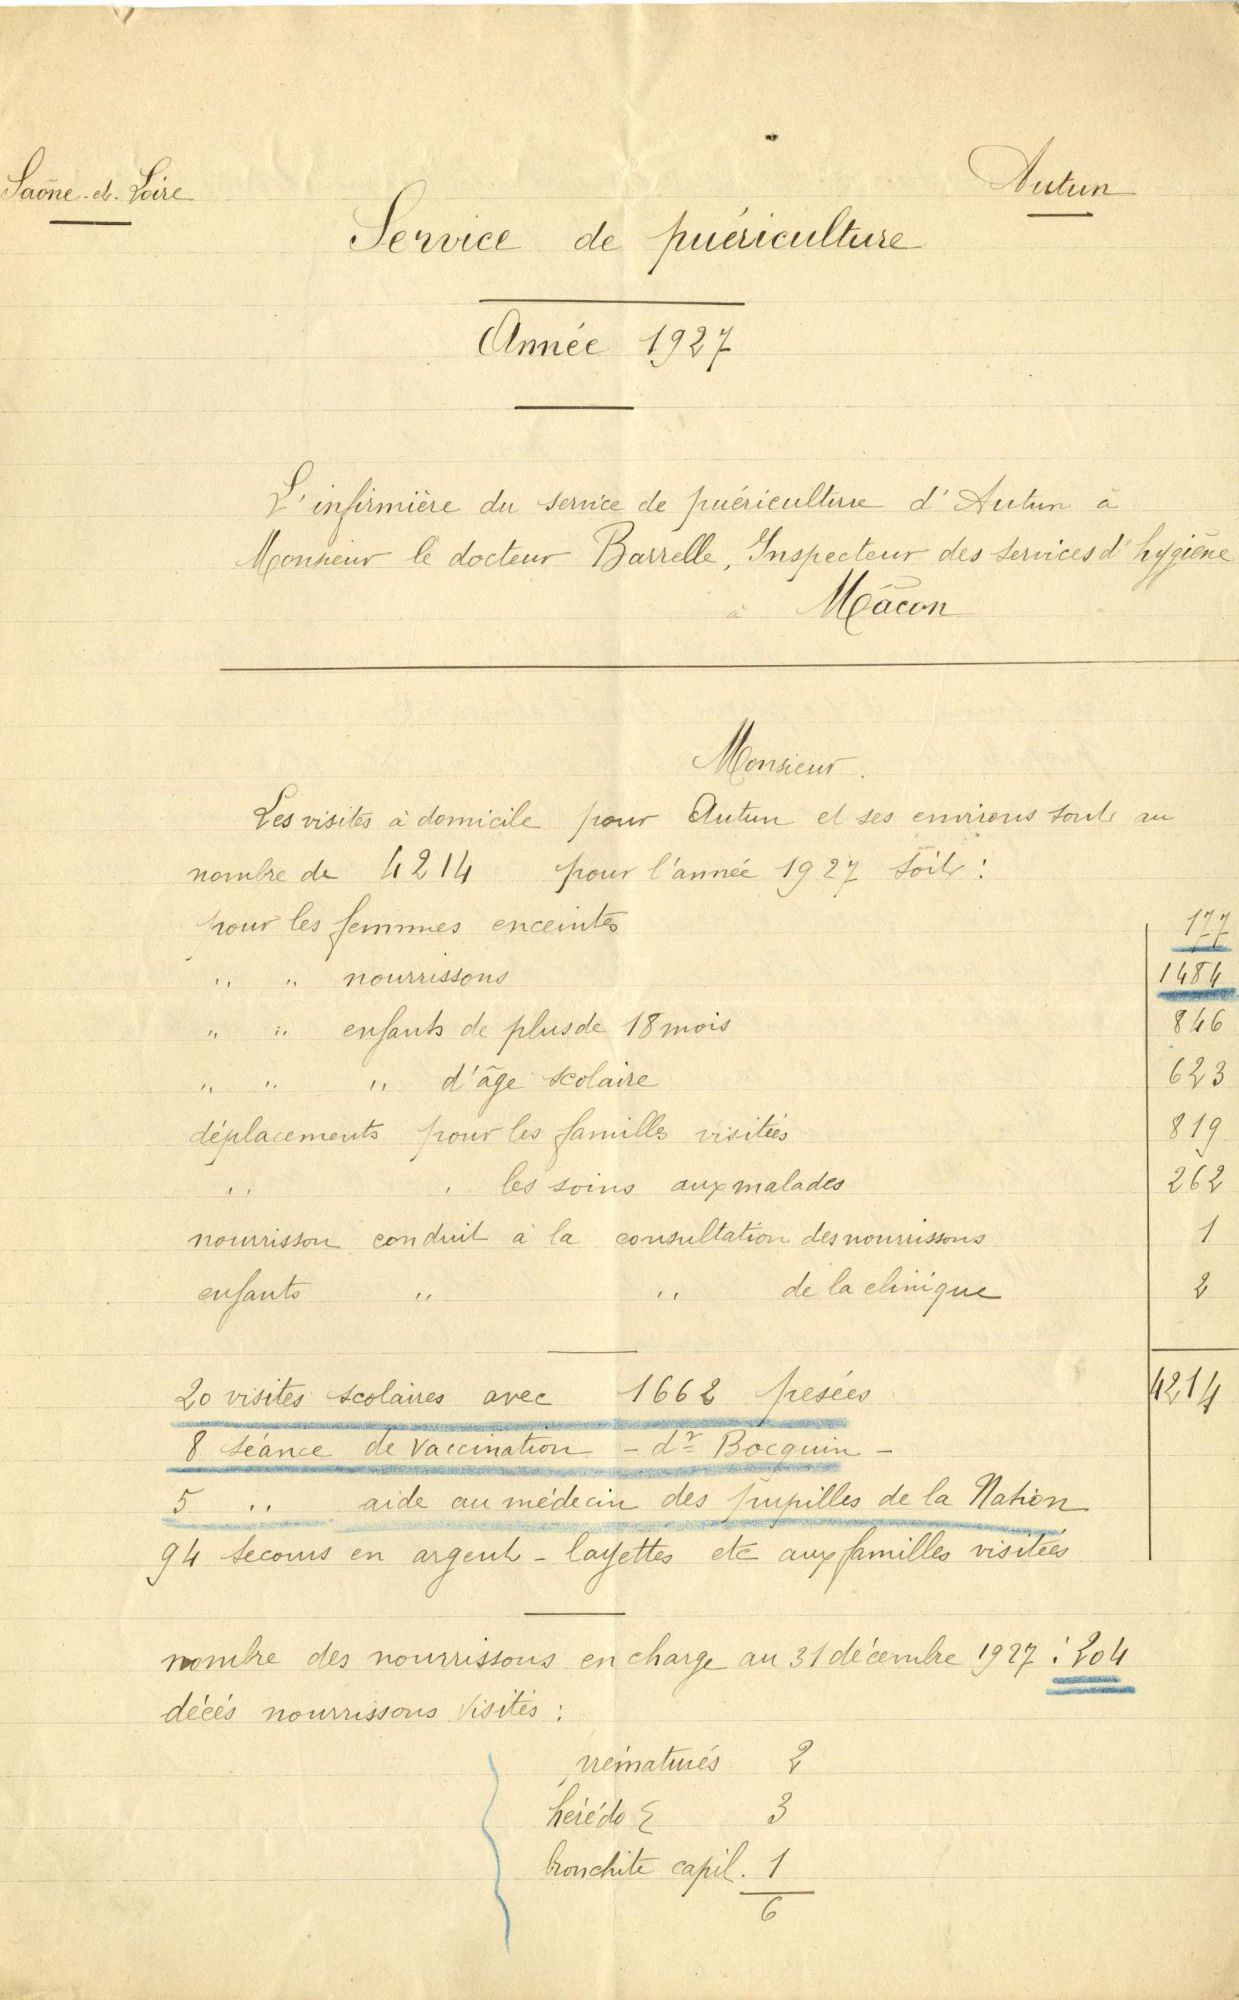 Saône-et-Loire
Autun
Service de puériculture
Année 1927
L'infirmière du service de puériculture d'Autun à
Monsieur le docteur Barrelle, Inspecteur des services d'hygiène
à Mâcon
Monsieur.
Les visites à domicile pour Autun et ses environs sont au
nombre de 4214 pour l'année 1927 soit :
pour les femmes enceintes 177
" " nourrissons 1484
" " enfants de plus de 18 mois 846
" " " d'âge scolaire 623
déplacements pour les familles visitées 819
" " les soins aux malades 262
nourrisson conduit à la consultation des nourrissons 1
enfants " " de la clinique 2
4214
20 visites scolaires avec 1662 pesées
8 séance de vaccination - dr Bocquin -
5 " aide au médecin des pupilles de la Nation
94 secours en argent - layettes etc aux familles visitées
nombre des nourrissons en charge au 31 décembre 1927 : 204
décés nourrissons visités :
prématurés 2
hérédo Σ 3
bronchite capil. 1
6